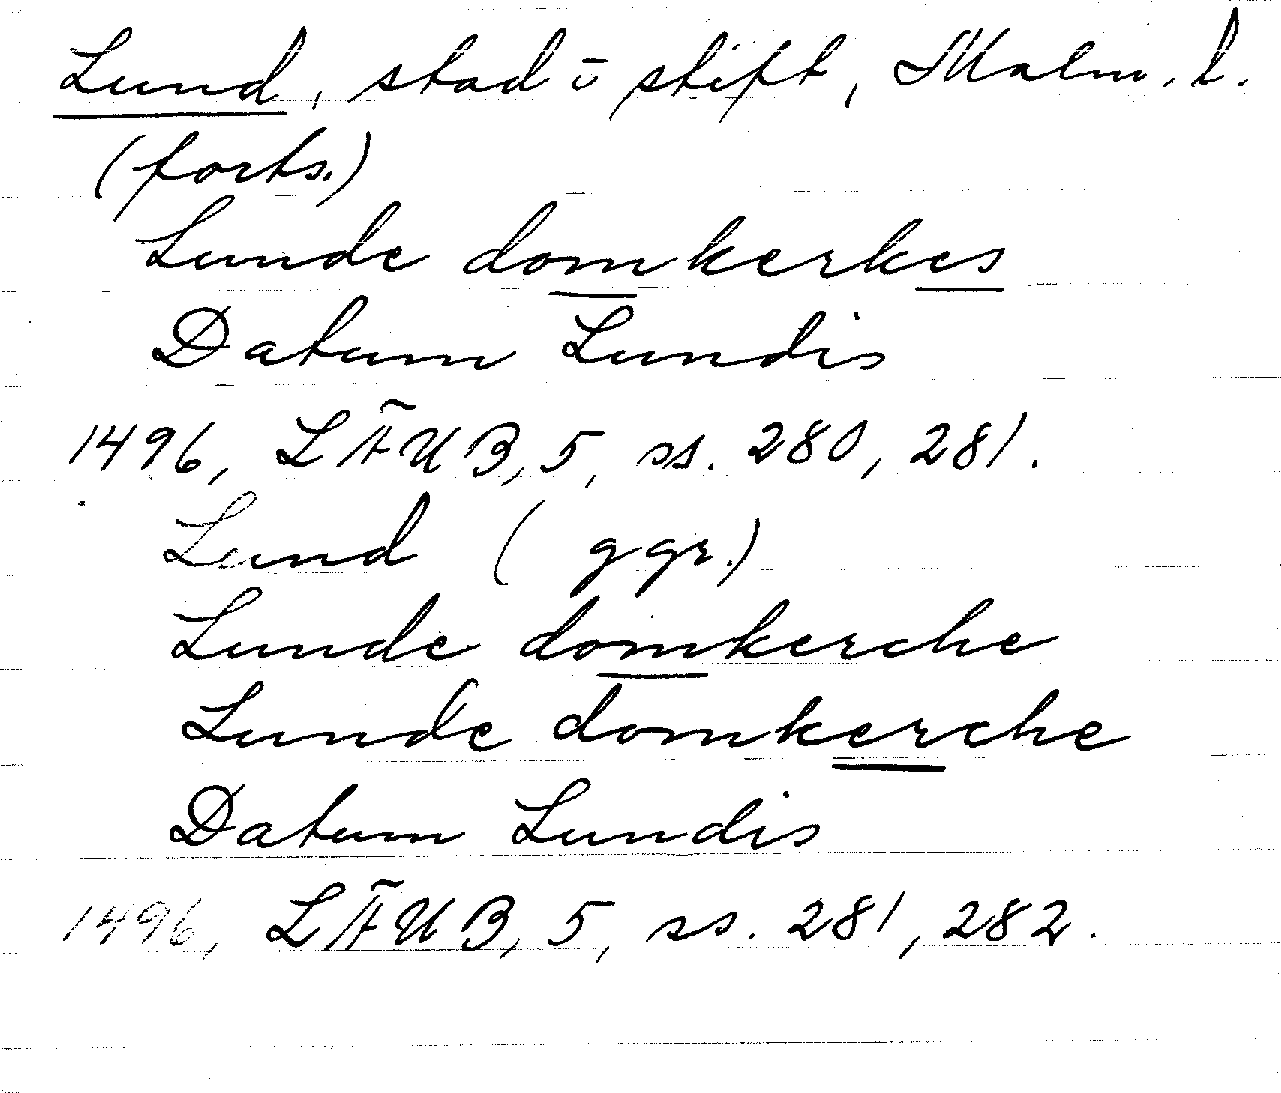 Lund, stad o stift, Malm. l.
(forts.)
Lunde domkerkes
Datum Lundis
1496, LÄUB, 5, ss. 280, 281.
Lund (ggr.)
Lunde domkerche
Lunde domkerche
Datum Lundis
1496, LÄUB, 5, ss. 281, 282.